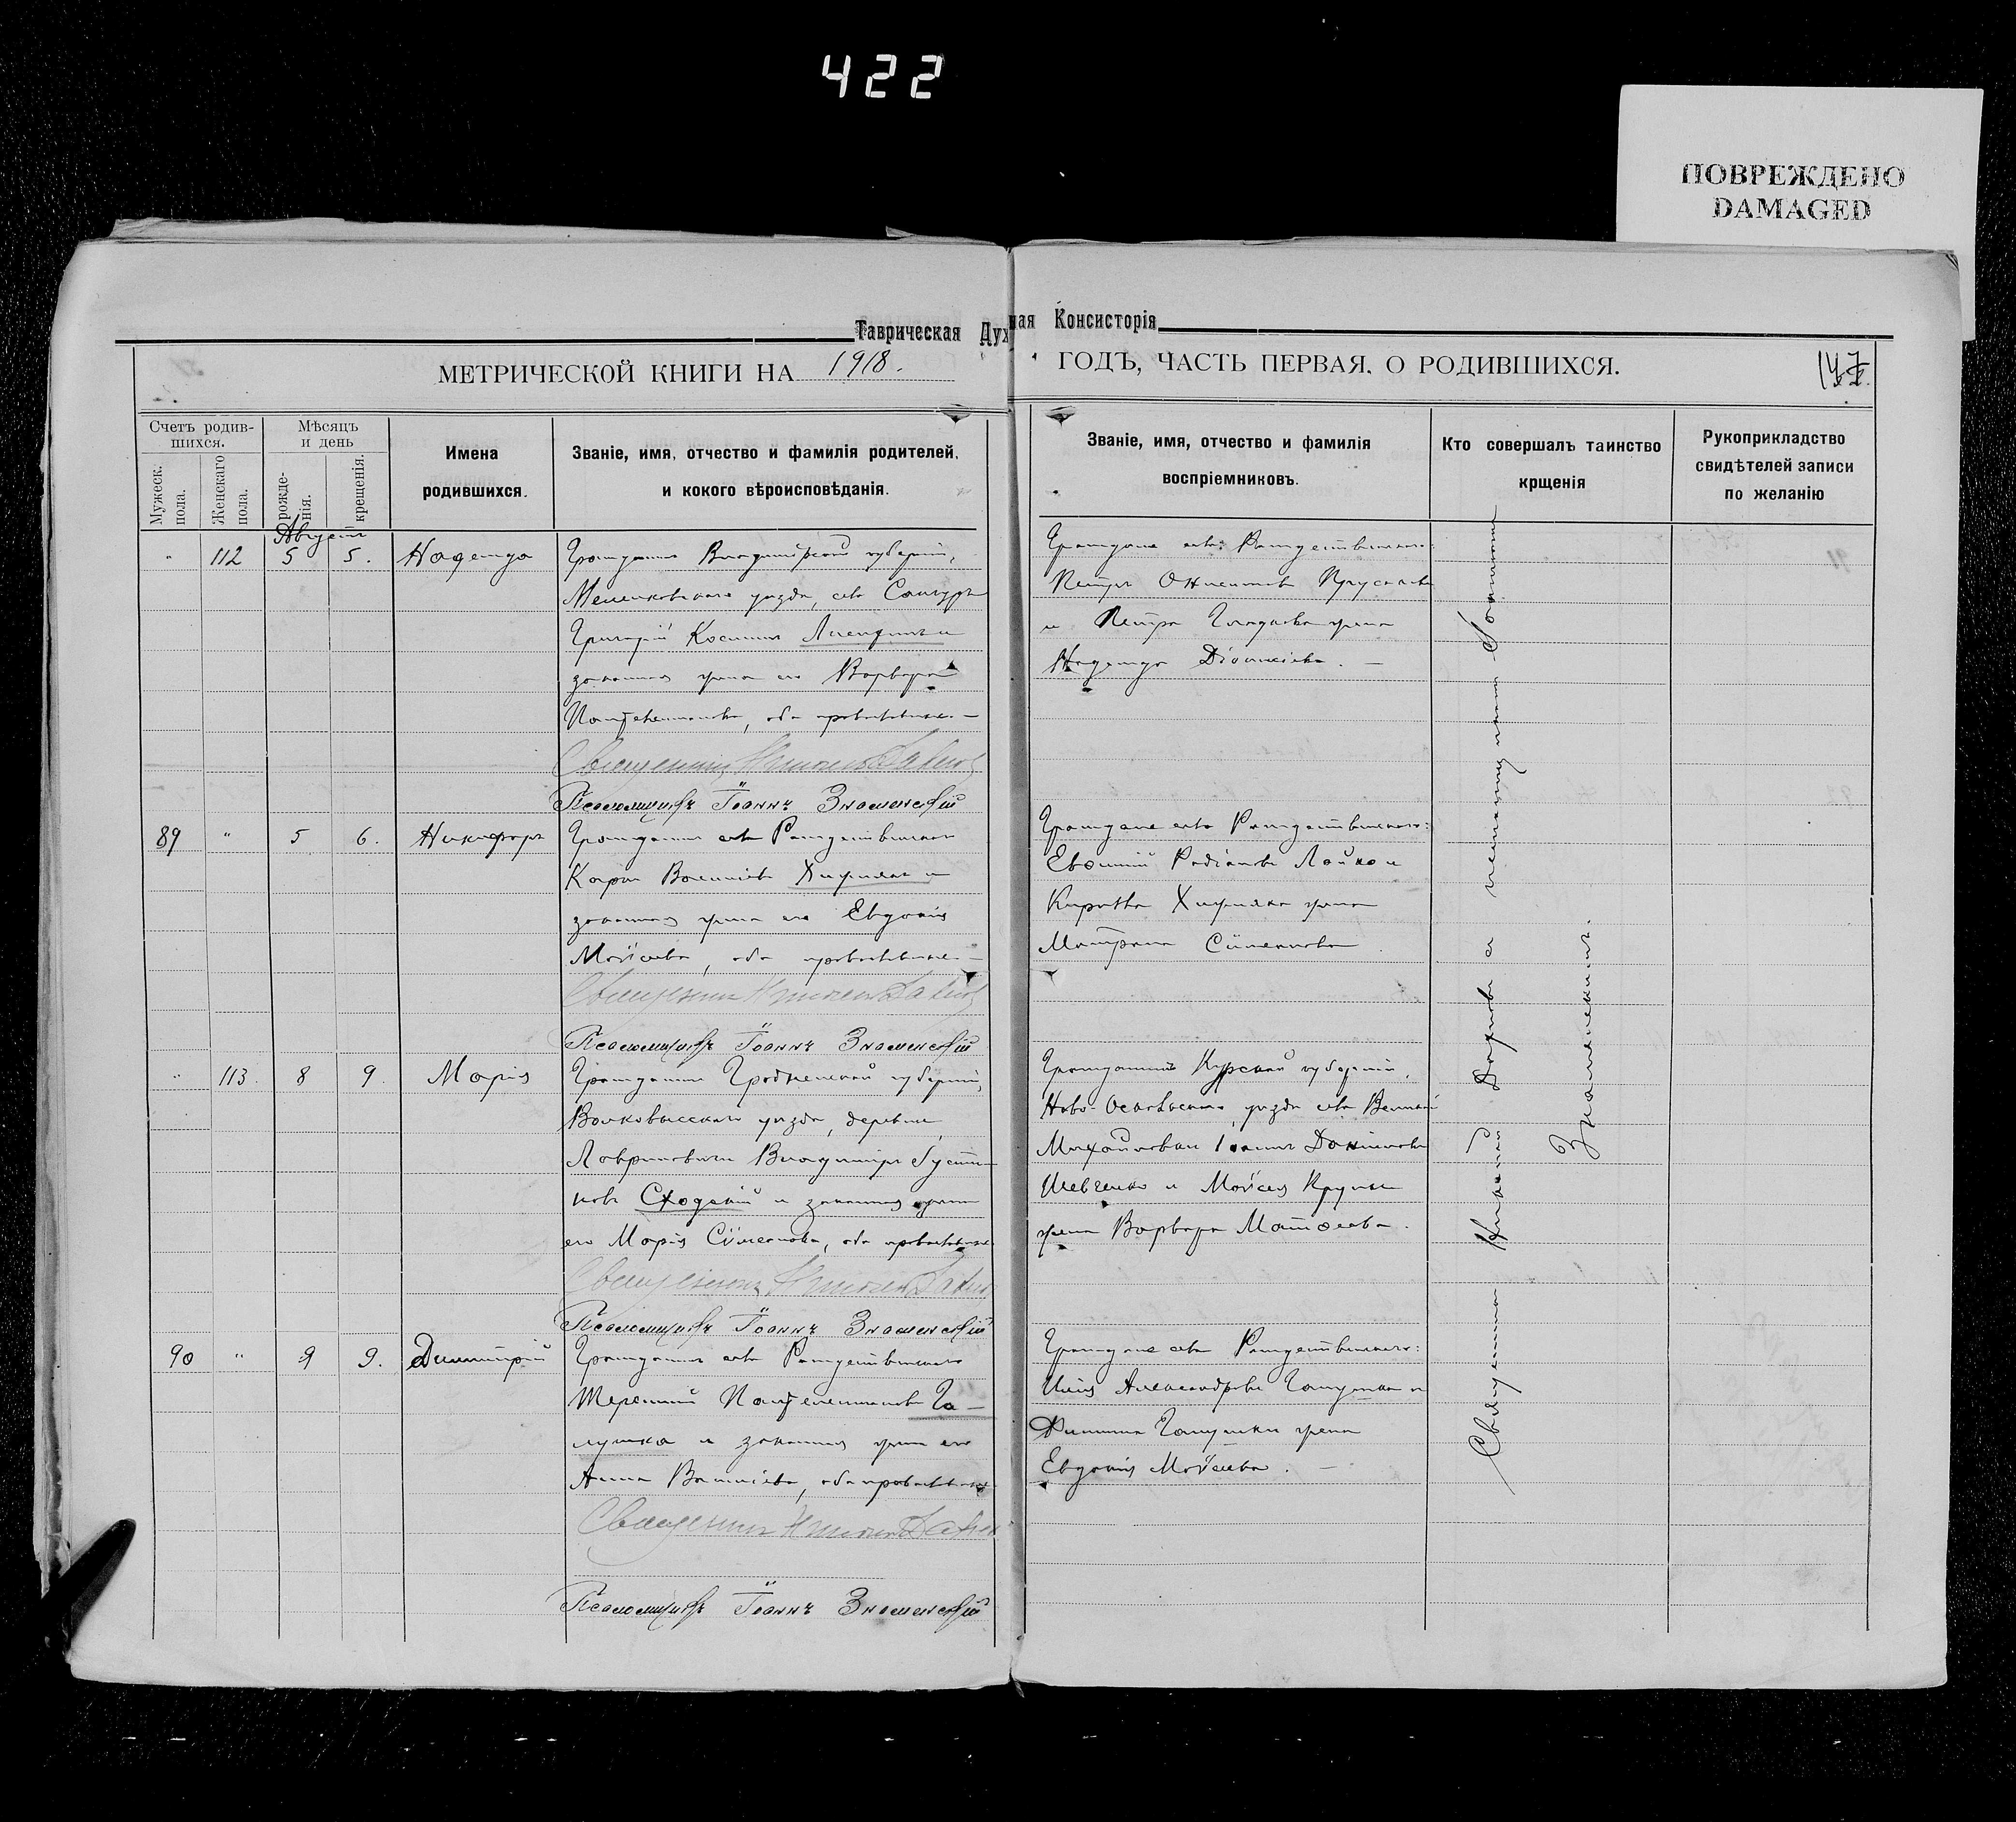 422
ПОВРЕЖДЕНО
DAMAGED
Таврическая Духная Консисторія
МЕТРИЧЕСКОЙ КНИГИ НА 1918. ГОДЪ, ЧАСТЬ ПЕРВАЯ, О РОДИВШИХСЯ.
147
Счетъ родив-
шихся.
Мужеск.
пола.
Женскаго
пола.
Мѣсяцъ
и день
рожде-
нія.
крещенія.
Имена
родившихся.
Званіе, имя, отчество и фамилія родителей,
и кокого вѣроисповѣданія.
Званіе, имя, отчество и фамилія
воспріемниковъ.
Кто совершалъ таинство
крщенія
Рукоприкладство
свидѣтелей записи
по желанію
Августъ
" 112 5 5. Надежда
Гражданинъ Владимірской губерніи,
Меленковскаго уѣзда, села
Григорій Косминъ и
законная жена его Варвара
Пантелеимонова, оба православные.—
Священникъ
Псаломщикъ Іоаннъ Знаменскій
Граждане села Рождественскаго:
Петръ
и Петра жена
Надежда Діонисіева. —
89 " 5 6. Никифоръ
Гражданинъ села Рождественскаго
Карпъ Василіевъ и
законная жена его Евдокія
Моѵсеева, оба православные—
Священникъ
Псаломщикъ Іоаннъ Знаменскій
Граждане села Рождественскаго:
Евѳимій Родіоновъ Лойко и
жена
Матрона Сѵмеонова
" 113. 8 9. Марія
Гражданинъ Гродненской губерніи,
Волковысскаго уѣзда, деревни
Лавриновичи Владиміръ Густи-
новъ Сходскій и законная жена
его Марія Сѵмеонова, оба православные
Священникъ
Псаломщикъ Іоаннъ Знаменскій
Гражданинъ Курской губерніи,
Ново-Оскольскаго уѣзда села Великой
Михайловки Іоаннъ Даніиловъ
Шевченко и Моѵсея
жена Варвара Матѳеева.
90 " 9 9. Димитрій
Гражданинъ села Рождественскаго
Терентій Пантелеимоновъ Га-
лушка и законная жена его
Анна Василіева, оба православные
Священникъ
Псаломщикъ Іоаннъ Знаменскій
Граждане села Рождественскаго:
Илія Александровъ Галушка и
Филиппа Галушки жена
Евдокія Моѵсеева. —
Священникъ съ псаломщикомъ Іоанномъ
Знаменскимъ.